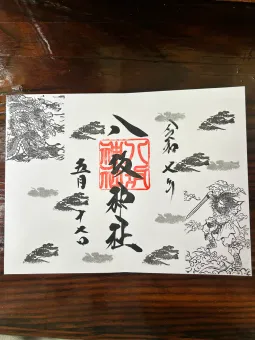 令和七年
八坂神社
五月十七日
八坂神社